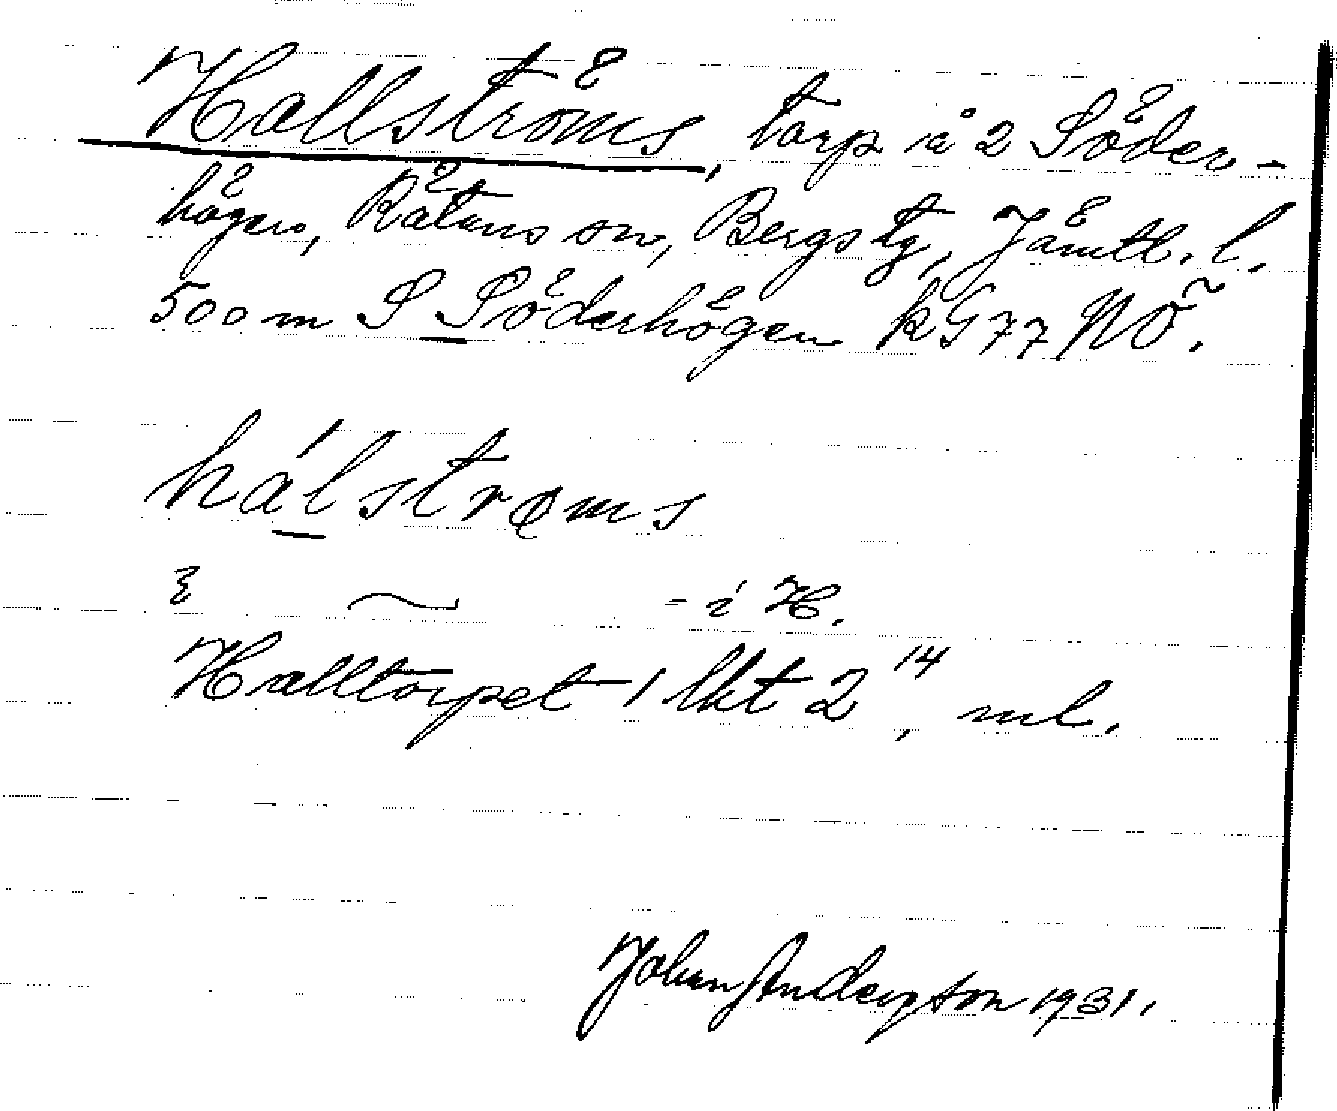 Hallströms, torp å 2 Söder-
högen, Rätans sn, Bergs tg, Jämtl. l.
500 m S Söderhögen kG 77 NÖ.
hálstrøms
ξ ~ - i H.
Halltorpet 1 lkt 2 14, ml.
Johan Anderzon 1931.